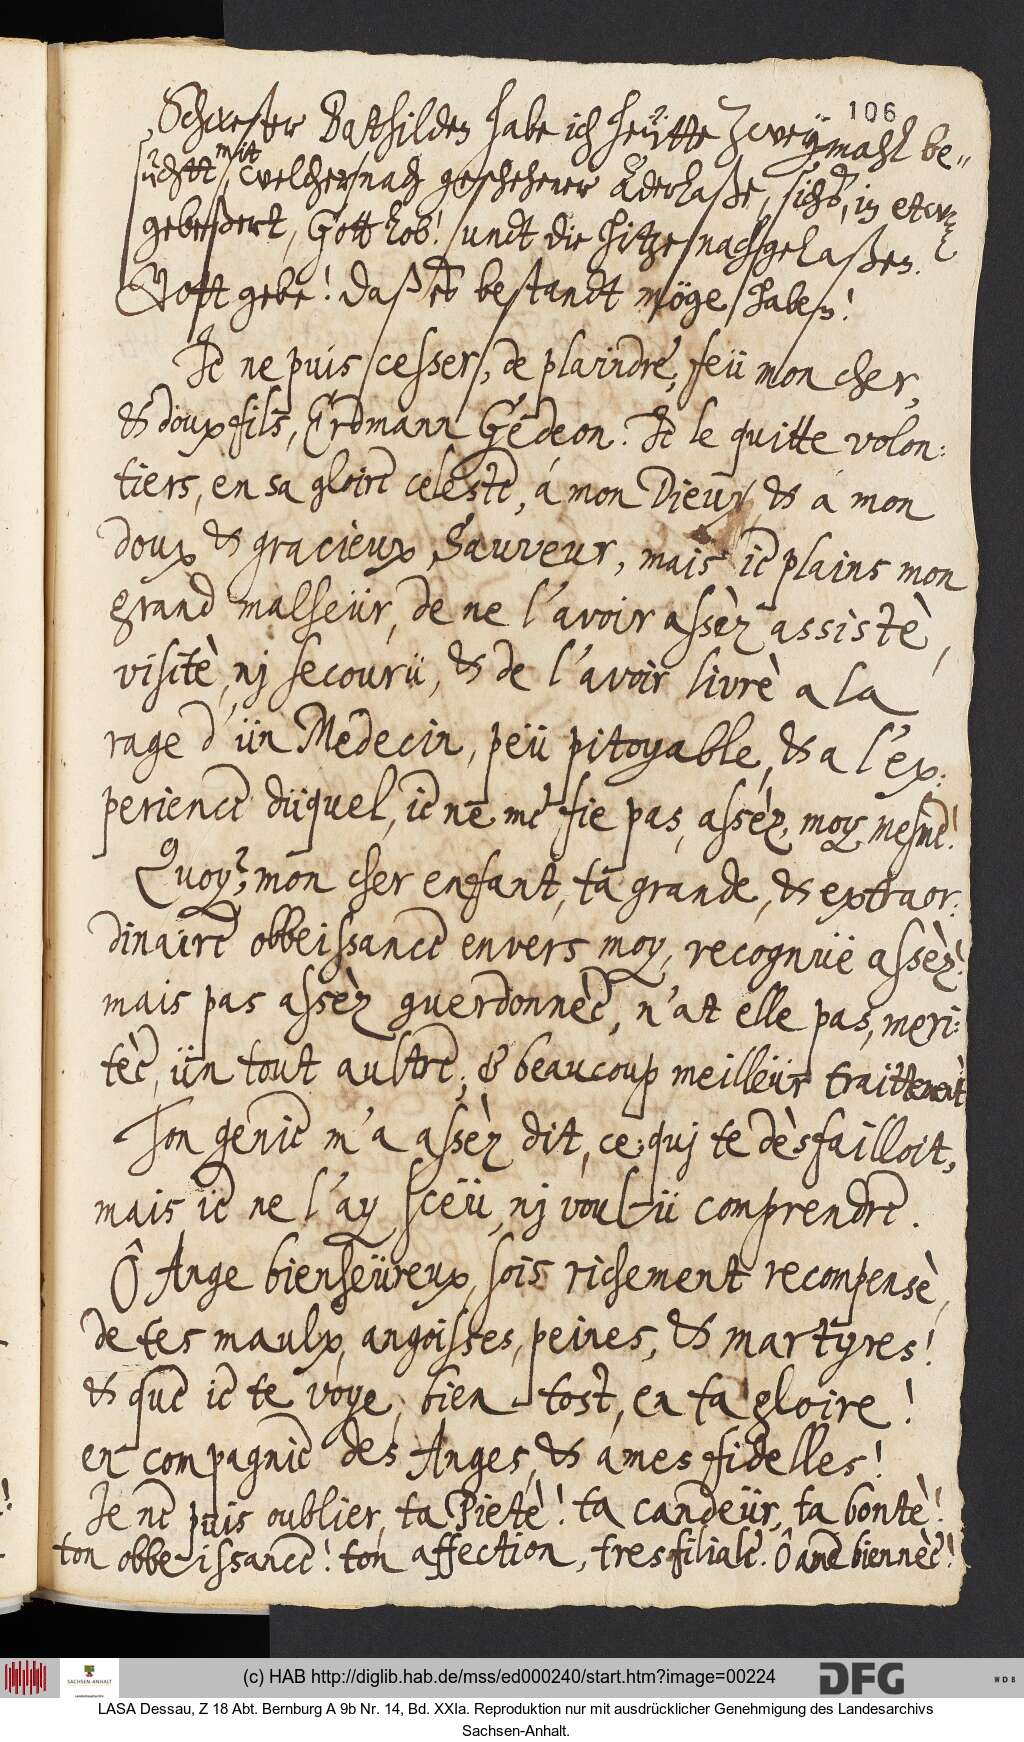 106
Schwester Bathilden habe ich heütte Zweymahl be-
sucht, mit welcher, nach geschehener Aderlaße, sichs, in etwaß
gebeßert, Gott lob! undt die hitze, nachgelaßen.
Gott gebe! daß es bestandt möge haben!
Je ne puis cesser, de plaindre, feü mon cher,
& doux fils, Erdmann Gedeon. Je le quitte volon:
tiers, en sa gloire celeste, á mon Dieu, & á mon
doux & gracieux Sauveur, mais ie plains mon
grand malheür, de ne l'avoir assèz assistè,
visitè, nj secourü, & de l'avoir livrè a la
rage d'ün Medecin, peü pitoyable, & a l'ex:
perience düquel, ie ne me fie pas, assèz, moy mesme!
Quoy? mon cher enfant, ta grande, & extraor:
dinaire obbeissance envers moy, recognüe assèz!
mais pas assèz guerdonnèe, n'at elle pas, meri:
tèe, ün tout aultre, & beaucoup meilleür traittement
Ton genie m'a assèz dit, ce, quj te dèsfailloit,
mais ie ne l'ay sceü, nj voulü comprendre.
Ô Ange bienheüreux, sois richement recompensè,
de tes maulx, angoisses, peines, & martyres!
& que ie te voye, bien tost, en ta gloire!
en compagnie des Anges, & ames fidelles!
Je ne puis oublier, ta Pietè! ta candeür, ta bontè!
ton obbeissance! ton affection, tresfiliale. Ô ame biennèe!
(c) HAB http://diglib.hab.de/mss/ed000240/start.htm?image=00224
SACHSEN-ANHALT
DFG
WDB
LASA Dessau, Z 18 Abt. Bernburg A 9b Nr. 14, Bd. XXIa. Reproduktion nur mit ausdrücklicher Genehmigung des Landesarchivs
Sachsen-Anhalt.